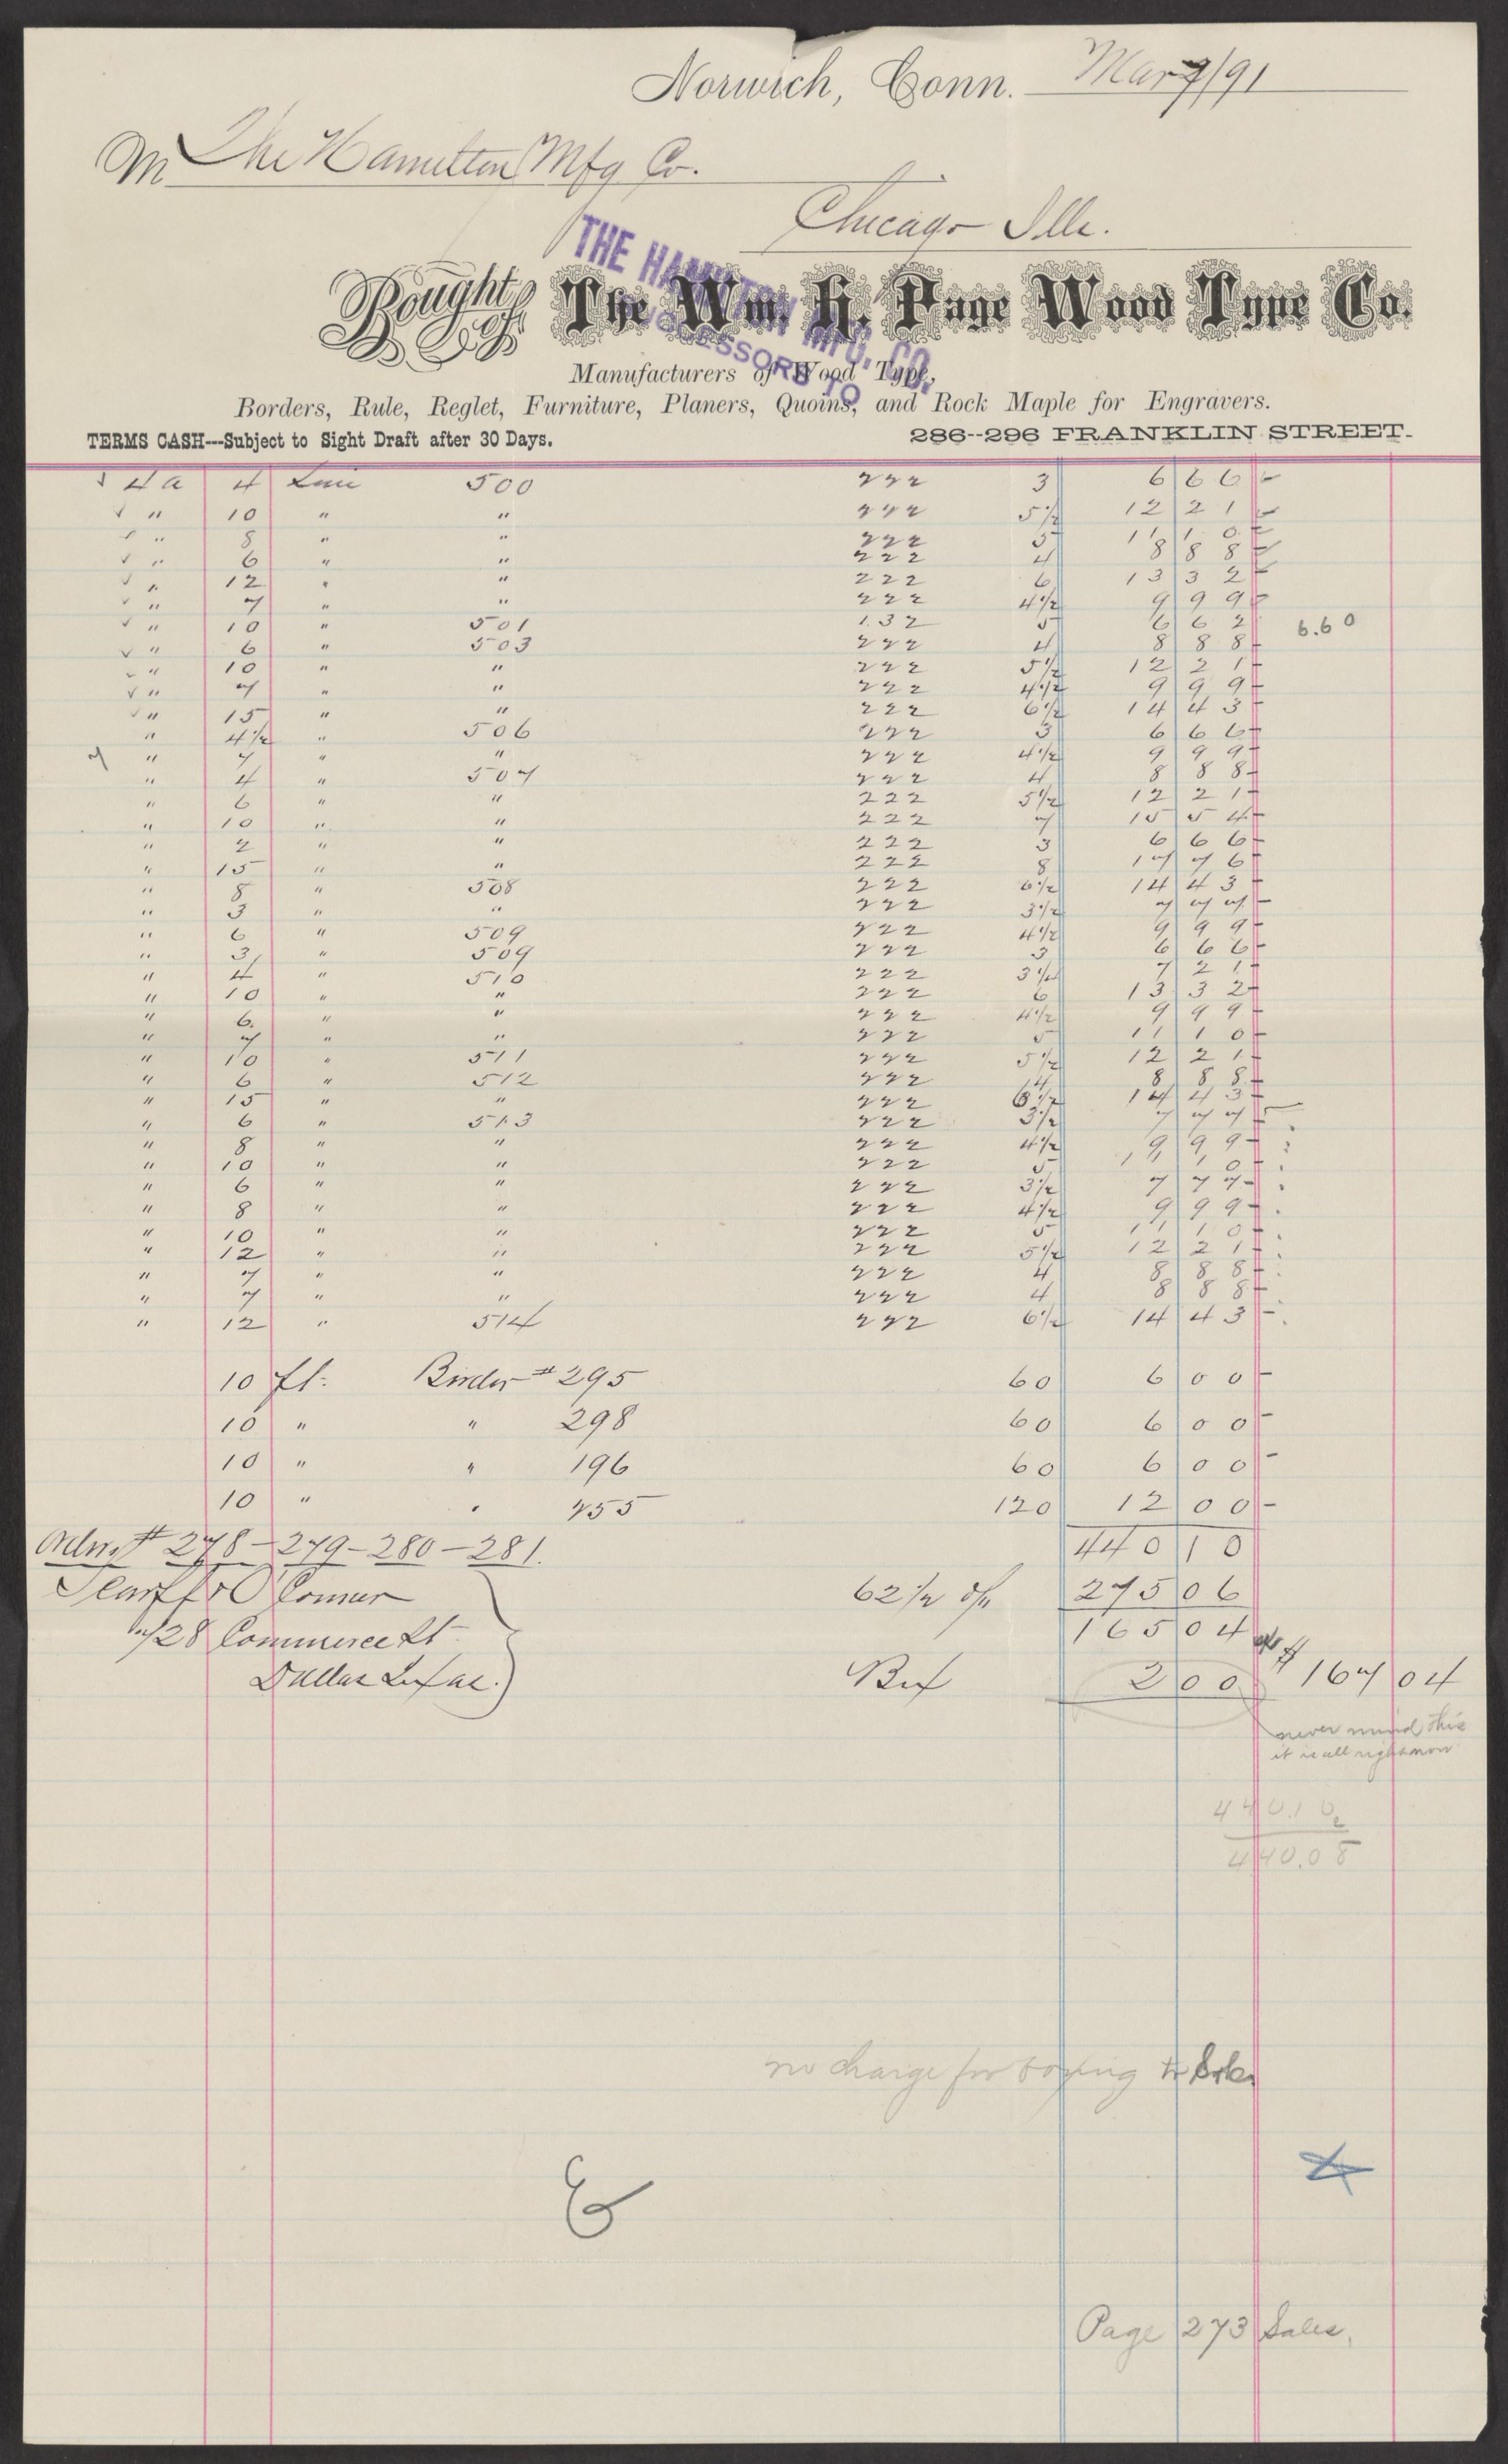 Norwich, Conn. Mar 7/91
M The Hamilton Mfg Co.
Chicago Ills.
THE HAMILTON MFG. CO.
SUCCESSORS TO
Bought of The Wm. H. Page Wood Type Co.
Manufacturers of Wood Type,
Borders, Rule, Reglet, Furniture, Planers, Quoins, and Rock Maple for Engravers.
TERMS CASH---Subject to Sight Draft after 30 Days. 286--296 FRANKLIN STREET.
✓ 4a 4 Line 500 222 3 6 66
✓ " 10 " " 222 5½ 12 21
✓ " 8 " " 222 5 11 10
✓ " 6 " " 222 4 8 88
✓ " 12 " " 222 6 13 32
✓ " 7 " " 222 4½ 9 99
✓ " 10 " 501 132 5 6 62 6.60
✓ " 6 " 503 222 4 8 88
✓ " 10 " " 222 5½ 12 21
✓ " 7 " " 222 4½ 9 99
✓ " 15 " " 222 6½ 14 43
" 4½ " 506 222 3 6 66
7 " 7 " " 222 4½ 9 99
" 4 " 507 222 4 8 88
" 6 " " 222 5½ 12 21
" 10 " " 222 7 15 54
" 2 " " 222 3 6 66
" 15 " " 222 8 17 76
" 8 " 508 222 6½ 14 43
" 3 " " 222 3½ 7 77
" 6 " 509 222 4½ 9 99
" 3 " 509 222 3 6 66
" 4 " 510 222 3¼ 7 21
" 10 " " 222 6 13 32
" 6 " " 222 4½ 9 99
" 7 " " 222 5 11 10
" 10 " 511 222 5½ 12 21
" 6 " 512 222 4 8 88
" 15 " " 222 6½ 14 43
" 6 " 513 222 3½ 7 77
" 8 " " 222 4½ 9 99
" 10 " " 222 5 11 10
" 6 " " 222 3½ 7 77
" 8 " " 222 4½ 9 99
" 10 " " 222 5 11 10
" 12 " " 222 5½ 12 21
" 7 " " 222 4 8 88
" 7 " " 222 4 8 88
" 12 " 514 222 6½ 14 43
10 ft. Border # 295 60 6 00
10 " " 298 60 6 00
10 " " 196 60 6 00
10 " " 255 120 12 00
Orders # 278-279-280-281. 440 10
Scarff & O'Connor 62½ % 275 06
728 Commerce St 165 04
Dallas Texas. Box 2 00 $ 167 04
never mind this
it is all right now
440.10
2
440.08
no charge for boxing to
&
Page 273 Sales.